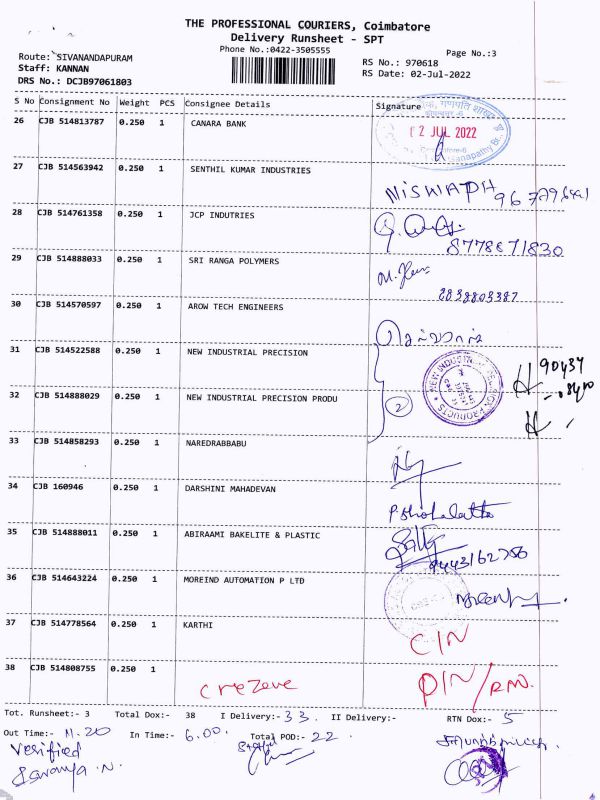 THE PROFESSIONAL COURIERS, Coimbatore
Delivery Runsheet - SPT
Phone No.:0422-3505555
Page No.:3
Route: SIVANANDAPURAM
Staff: KANNAN
DRS No.: DCJB97061803
RS No.: 970618
RS Date: 02-Jul-2022
S No Consignment No Weight PCS Consignee Details Signature
26 CJB 514813787 0.250 1 CANARA BANK
2 JUL 2022
27 CJB 514563942 0.250 1 SENTHIL KUMAR INDUSTRIES
28 CJB 514761358 0.250 1 JCP INDUTRIES
8778671830
29 CJB 514888033 0.250 1 SRI RANGA POLYMERS
2838803387
30 CJB 514570597 0.250 1 AROW TECH ENGINEERS
31 CJB 514522588 0.250 1 NEW INDUSTRIAL PRECISION
32 CJB 514888029 0.250 1 NEW INDUSTRIAL PRECISION PRODU
2
33 CJB 514858293 0.250 1 NAREDRABBABU
34 CJB 160946 0.250 1 DARSHINI MAHADEVAN
35 CJB 514888011 0.250 1 ABIRAAMI BAKELITE & PLASTIC
9443162756
36 CJB 514643224 0.250 1 MOREIND AUTOMATION P LTD
37 CJB 514778564 0.250 1 KARTHI
CIN
38 CJB 514808755 0.250 1
Crezeve
PIN/RMD.
Tot. Runsheet:- 3 Total Dox:- 38 I Delivery:- 33. II Delivery:- RTN Dox:- 5
Out Time:- 11.20 In Time:- 6.00. Total POD:- 22.
Verified
Saranya.N.